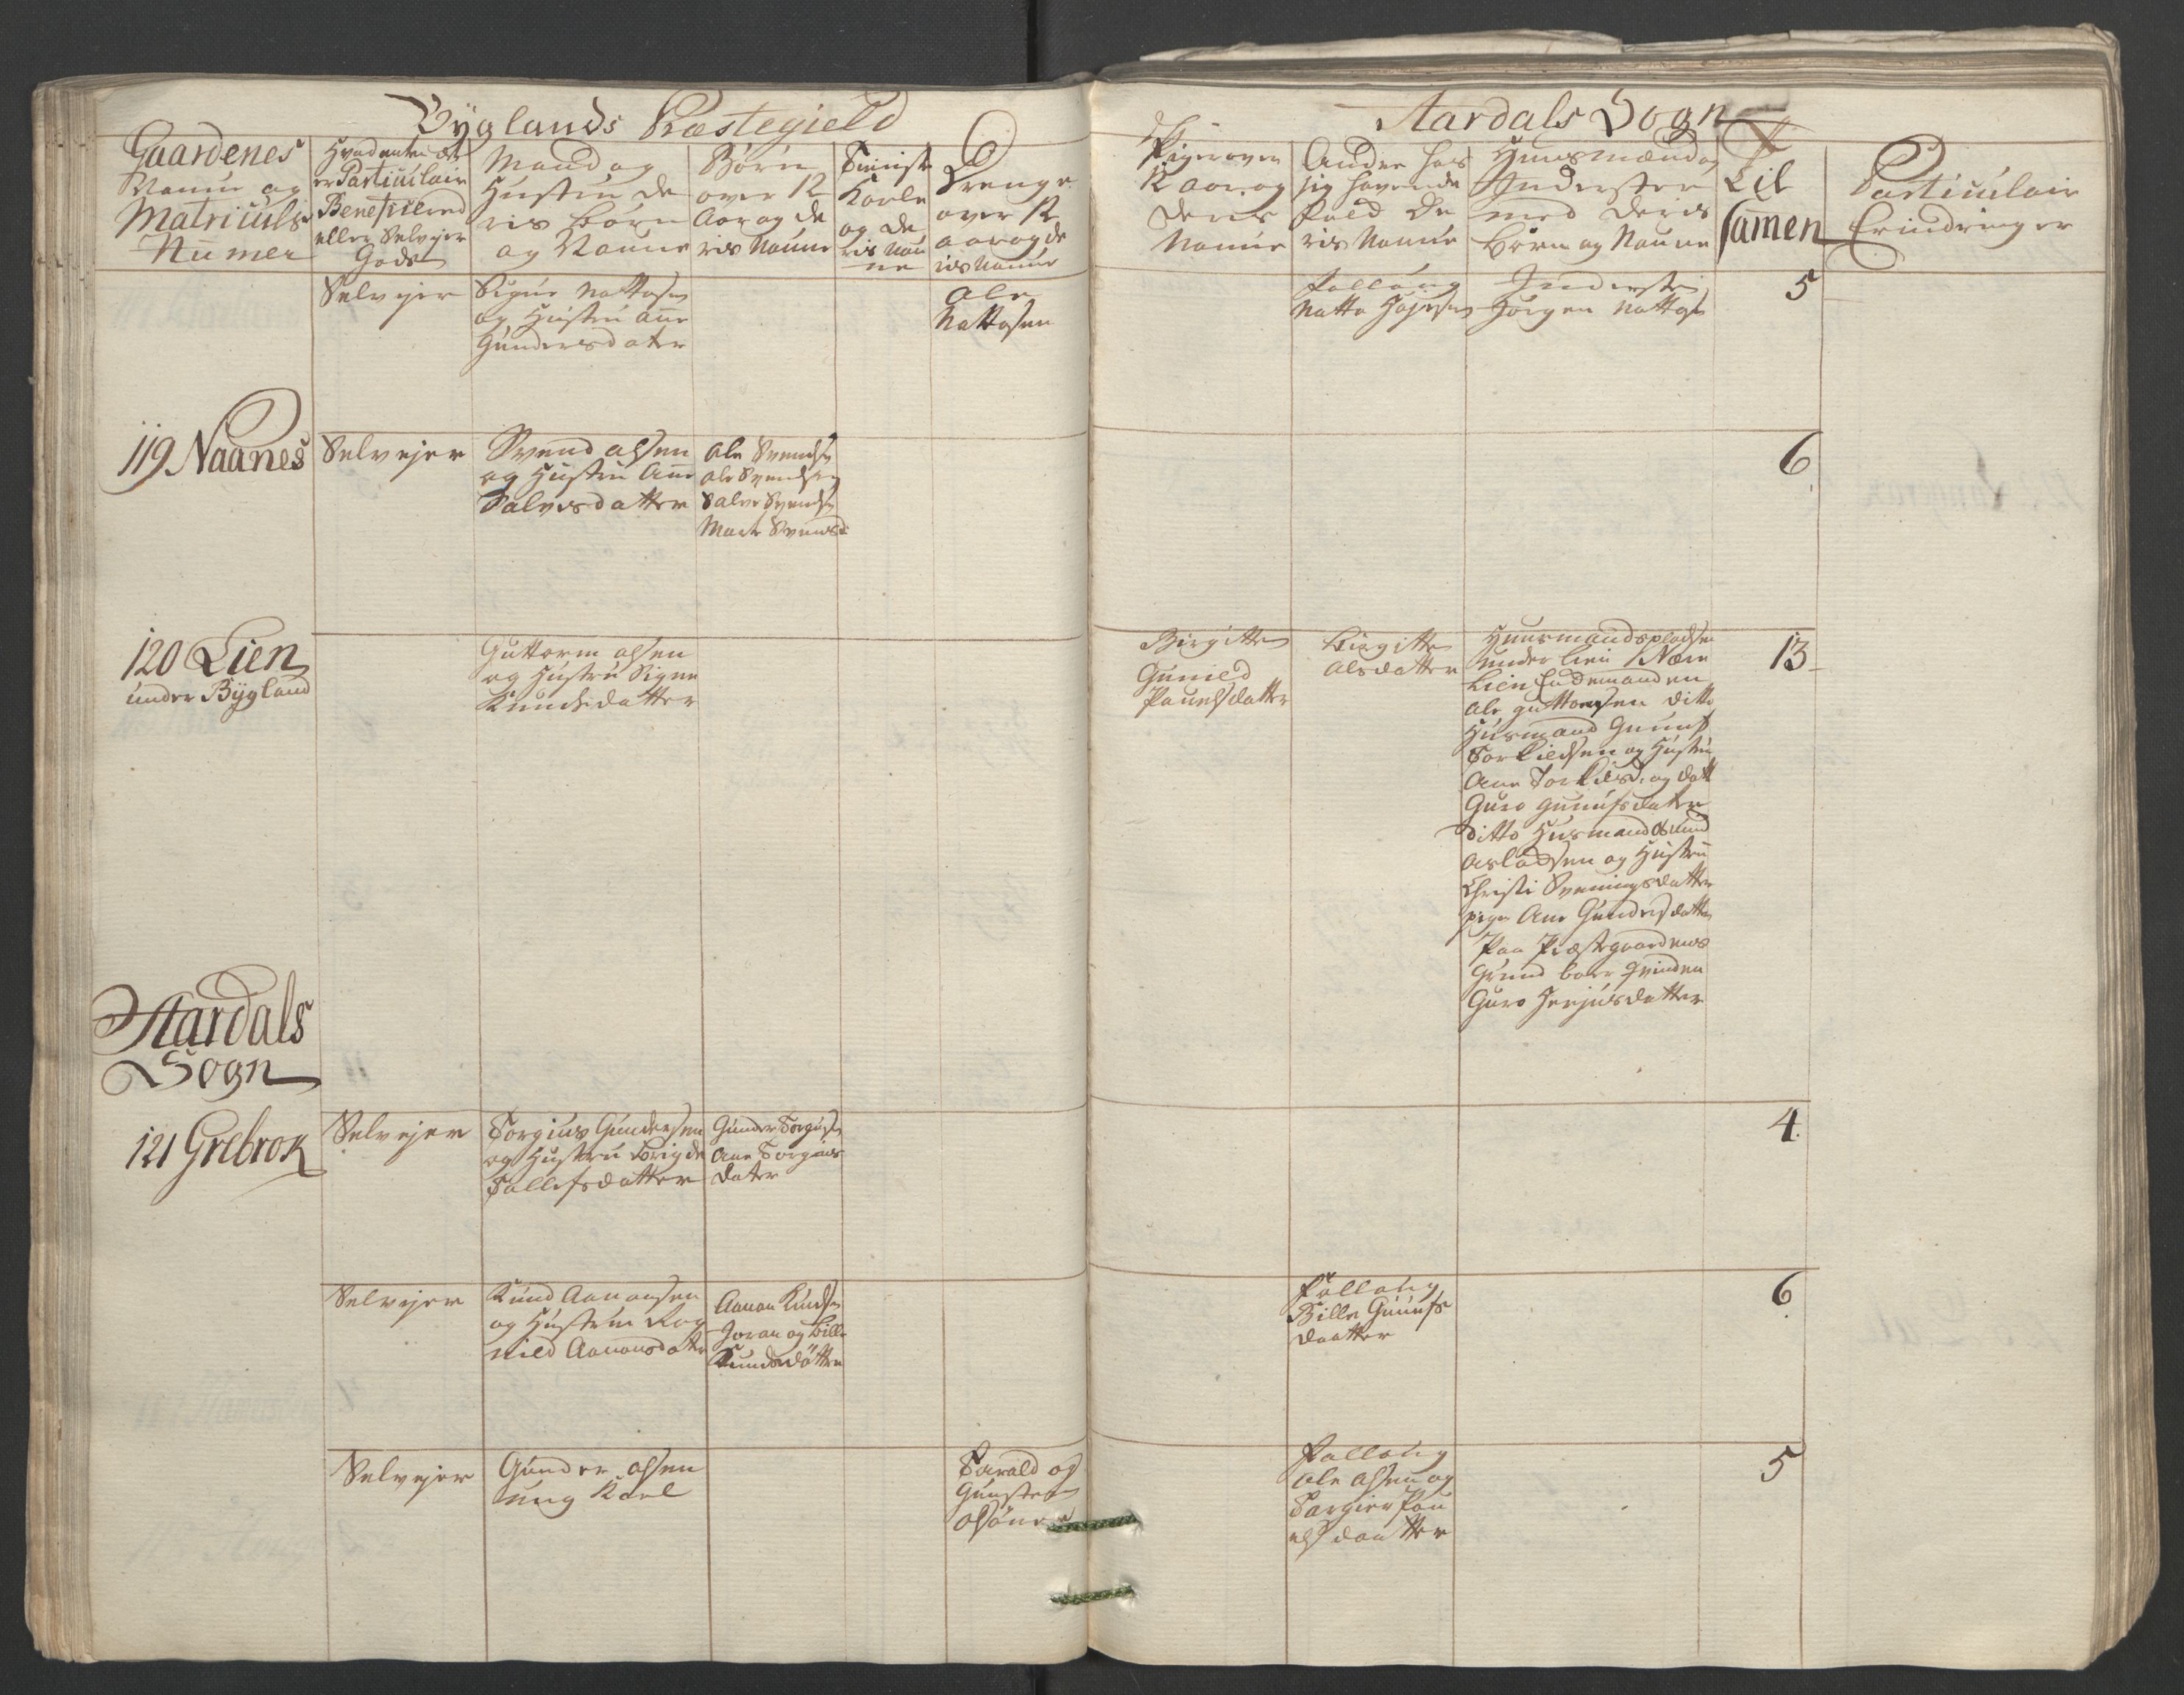 Byglands Præstegield
Aardals Sogn
Gaardenes
Navne og
Matriculs
Numer
Hvad enten det
er Particulair
Beneficered
eller Selvejer
Gods
Mand og
Hustru de
ris Børn
og Navne
Børn
over 12
Aar og de
ris Navne
Tieniste
Karle
og de
ris Nav
ne
Drenge
over 12
aar og de
ris Navne
Piger over
12 Aar og
deris
Navne
Andre hos
sig havende
Fold de
ris Navne
Huusmænd og
Inderster
med deris
Børn og Navne
Til
samen
Particulair
Erindringer
Selvejer
og Hustru Ane
Gundersdater
Ole
Follaug
Inderste
Jørgen
5
119 Naanes
Selvejer
Svend Olsen
og Hustru Ane
Salvesdatter
Ole Svends:
Ole Svendsen
Salve Svends:
Mari Svends:
6
120 Lien
under Bygland
Guttorm Olsen
og Hustru Signe
Knudsdatter
Birgitte
Gunild
Pauelsdatter
Birgitte
Olsdatter
Huusmandspladsen
under Lien
Lien Endemanden
Ole Guttormsen ditto
Husmand Gunuf
Torkildsen og Hustru
Ane Torkilds: og dat
Guro Gunufsdatter
ditto Husmand Knud
Aslachsen og Hustru
Christi Sveningsdatter
pige Ane Gundersdatter
Paa Præstegaardens
Grund boer Qvinden
Guro Herjusdatter
13
Aardals
Sogn
121 Grebrok
Selvejer
Torgius Gundersen
og Hustru Torigde
Tallefsdatter
Gunder Torgius:
Ane Torgius
dater
4
Selvejer
Knud Aanonsen
og Hustrue Rag
nild Aanonsdatter
Aanon Knuds:
Joran og Bille
Knudsdøttre
Follaug
Bille Gunufs
daatter
6
Selvejer
Gunder Olsen
ung Karl
Tarald og
Gunsten
Olsønner
Follaug
Ole Olsen og
Torgier Pau
els daatter
5